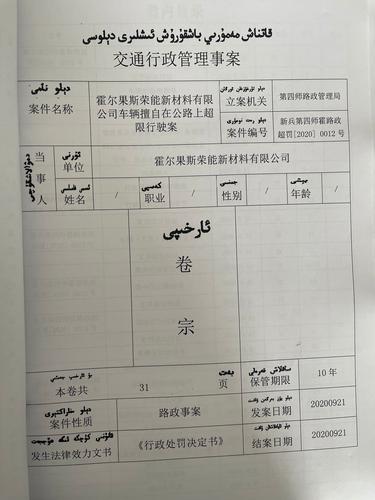 قاتناش مەمۇرىي باشقۇرۇش ئىشلىرى دېلوسى
交通行政管理事案
دېلو نامى
案件名称
霍尔果斯荣能新材料有限
公司车辆擅自在公路上超
限行驶案
立案机关
第四师路政管理局
案件编号
新兵第四师霍路政
超罚[2020] 0012 号
当事人
ئورنى
单位
霍尔果斯荣能新材料有限公司
姓名
/
كەسپى
职业
/
جىنسى
性别
/
يېشى
年龄
/
ئارخىپى
卷
宗
بۇ ئارخىپ جەمئىي
本卷共
31
بەت
页
ساقلاش قەرەلى
保管期限
10 年
案件性质
路政事案
发案日期
20200921
发生法律效力文书
《行政处罚决定书》
结案日期
20200921